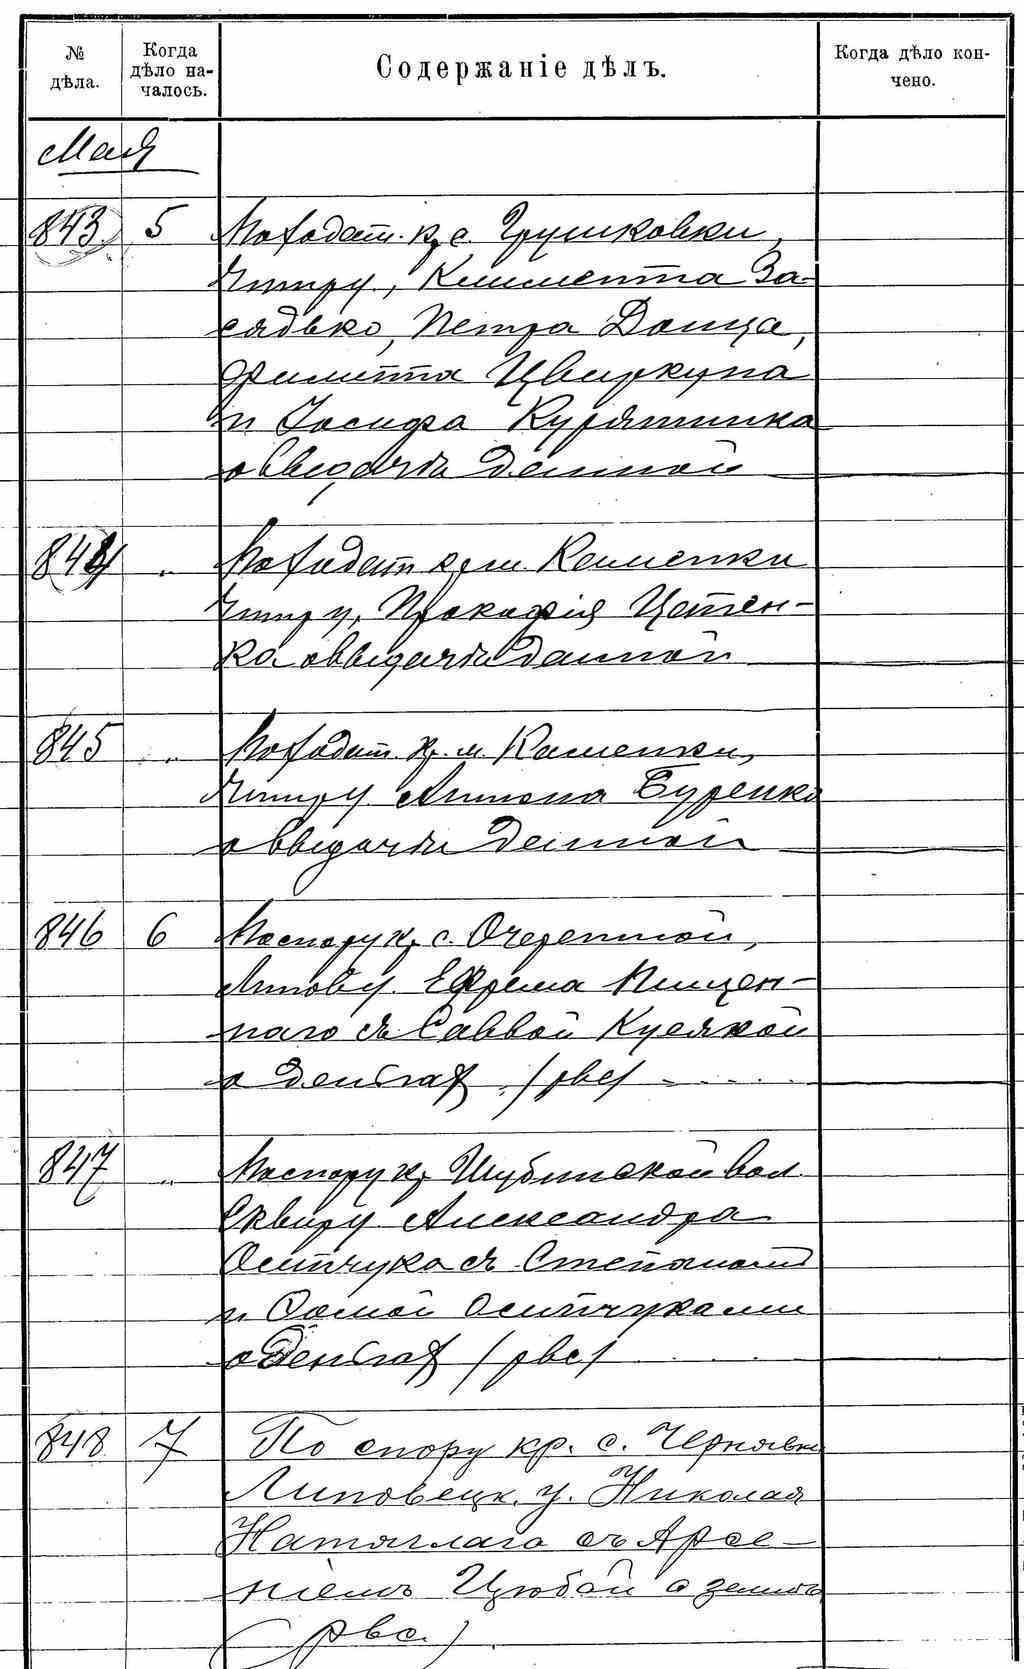 № дѣла. Когда дѣло началось. Содержаніе дѣлъ. Когда дѣло кончено.
Мая
843 5 По ходат. кр. с. Грушковки,
Чигир. у., Климента За-
сядько, Петра Донца,
Филиппа Цвиркуна
и Іосифа Курятника
о выдачѣ данной
844 „ По ходат. кр. м. Каменки
Чигир. у., Прокофія Цепен-
ка о выдачѣ данной
845 „ По ходат. кр. м. Каменки,
Чигир. у. Антона Буренко
о выдачѣ данной
846 6 По спору кр. с. Очеретной,
Липов. у. Ефрема Пищен-
наго съ Саввой Кусякой
о деньгах /рвс/
847 „ По спору кр. Шубинской вол.
Сквир. у. Александра
Осипчука съ Степаномъ
и Осипчуками
о деньгах /рвс/
848 7 По спору кр. с. Чернявки
Липовецк. у. Николая
Натяглаго съ Арсе-
ніемъ Цюбой о землѣ
(рвс.)